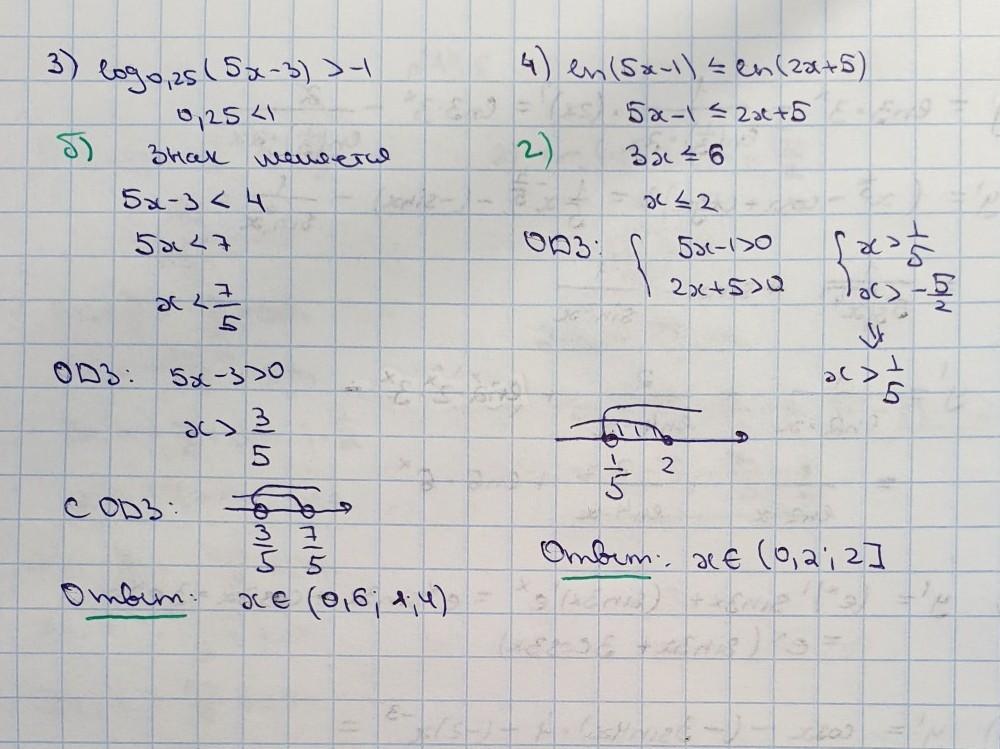 3) log0,25(5x-3) > -1
0,25 < 1
б) Знак меняется
5x-3 < 4
5x < 7
x < 7/5
ОДЗ: 5x-3>0
x > 3/5
С ОДЗ:
3/5 7/5
Ответ: x ∈ (0,6; 1,4)
4) ln(5x-1) ≤ ln(2x+5)
5x-1 ≤ 2x+5
2) 3x ≤ 6
x ≤ 2
ОДЗ: { 5x-1>0 { x > 1/5
2x+5>0 x > -5/2
⇓
x > 1/5
1/5 2
Ответ: x ∈ (0,2; 2]